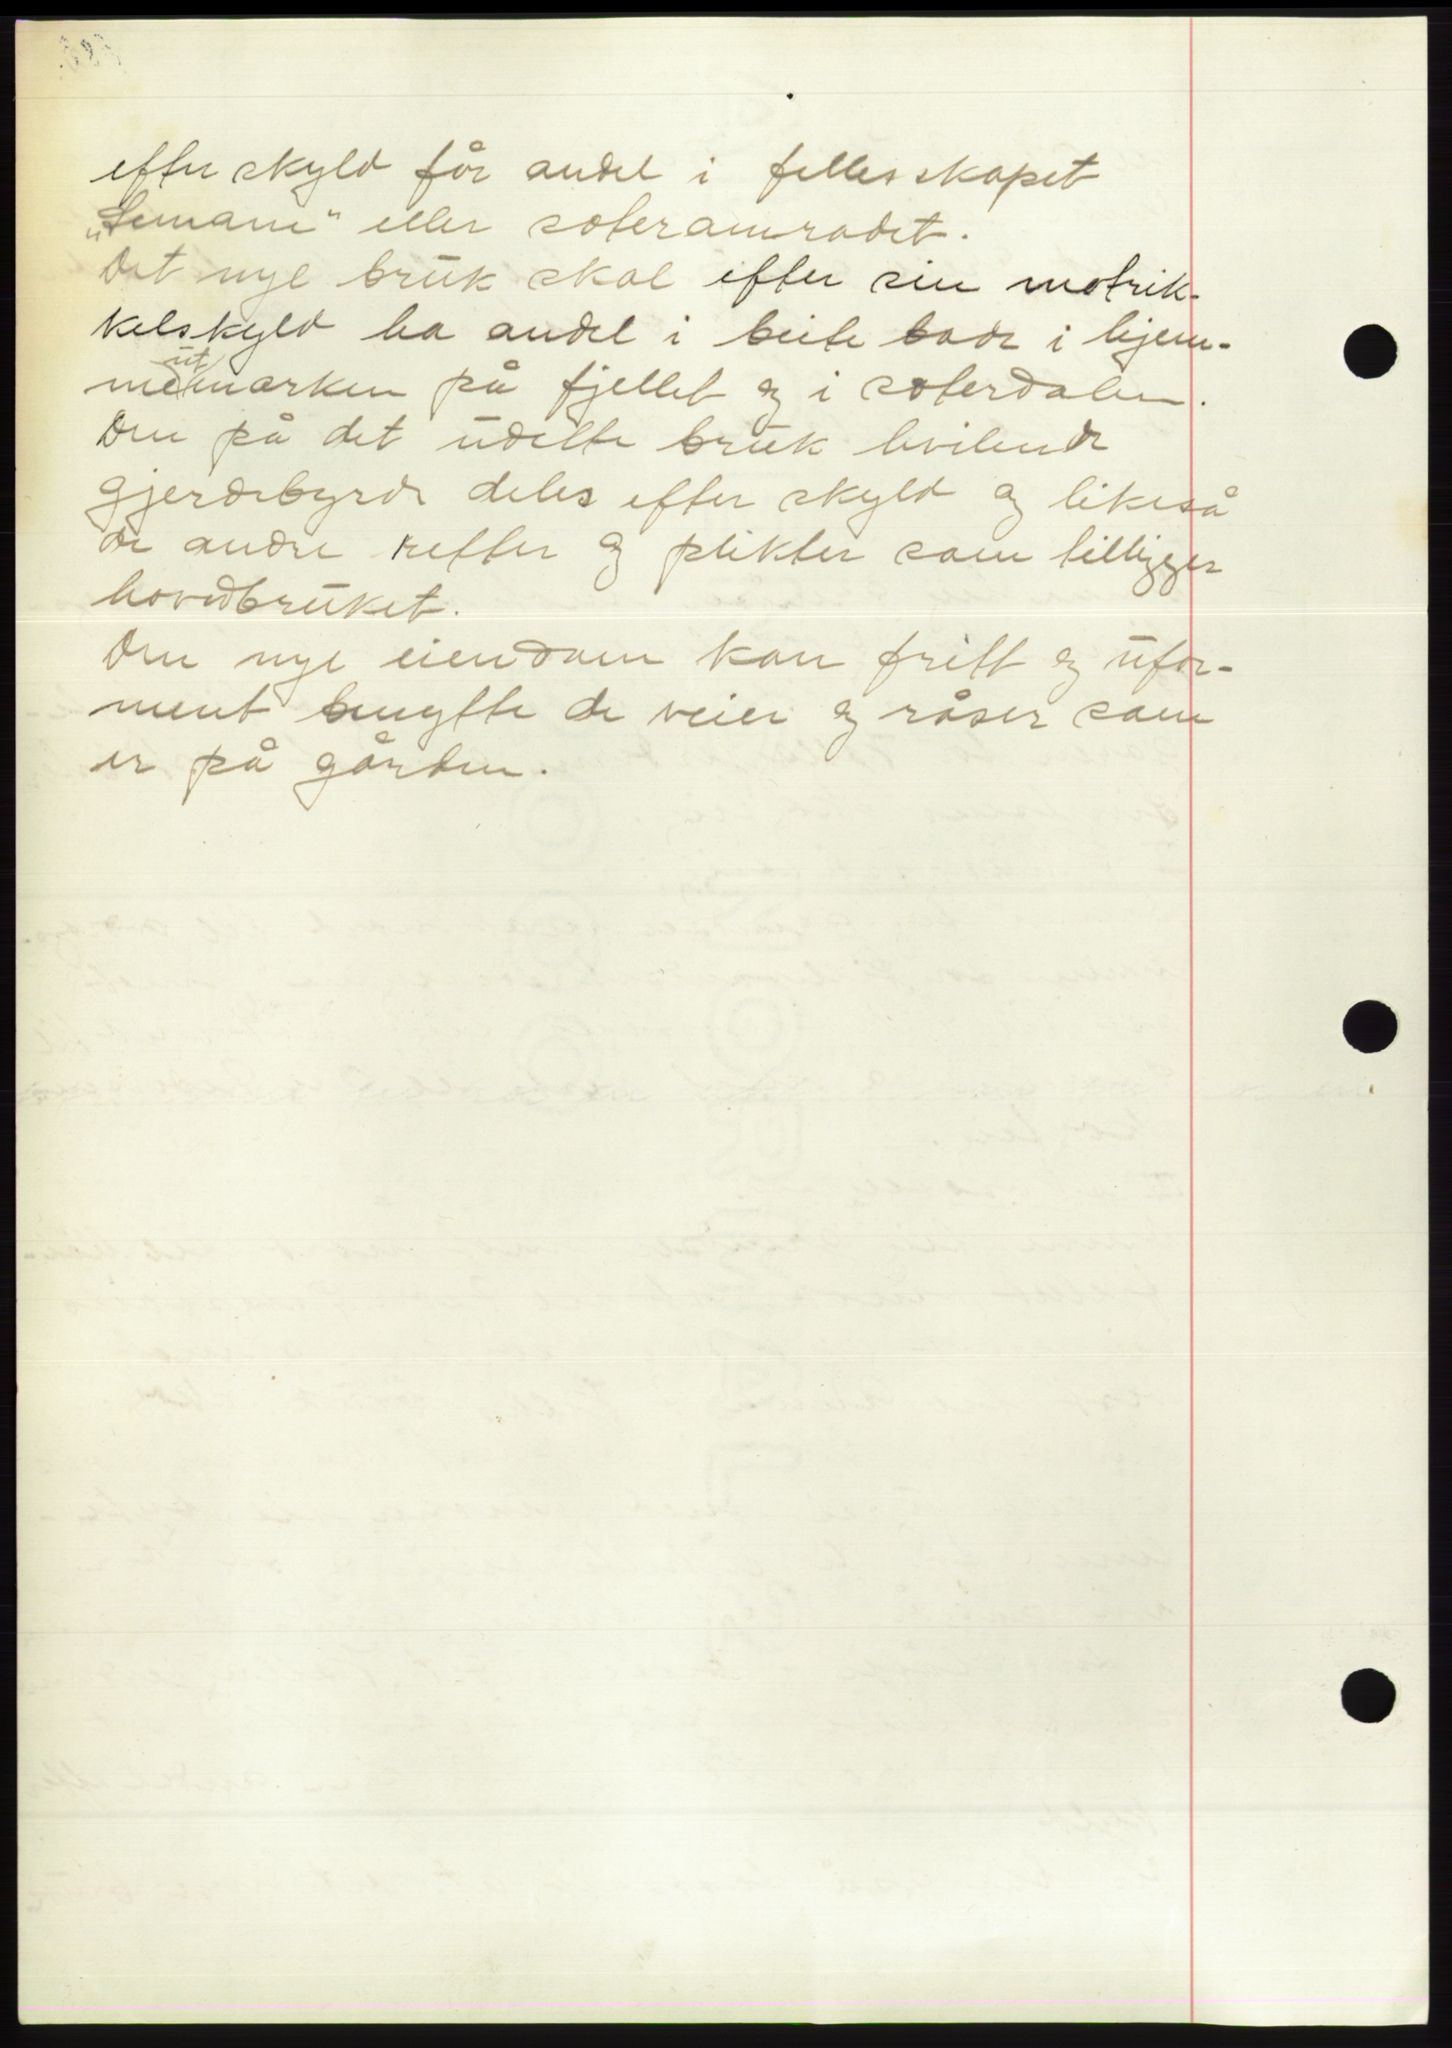 efter skyld får andel i fellesskapet
eller sæterområdet.
Det nye bruk skal efter sin matrik-
kelskyld ha andel i beite både i hjem-
meutmarken på fjellet og i sæterdalen.
Den på det udelte bruk hvilende
gjerdebyrde deles efter skyld og likeså
de andre retter og plikter som tilligger
hovedbruket.
Den nye eiendom kan fritt og ufor-
ment benytte de veier og råser som
er på gården.